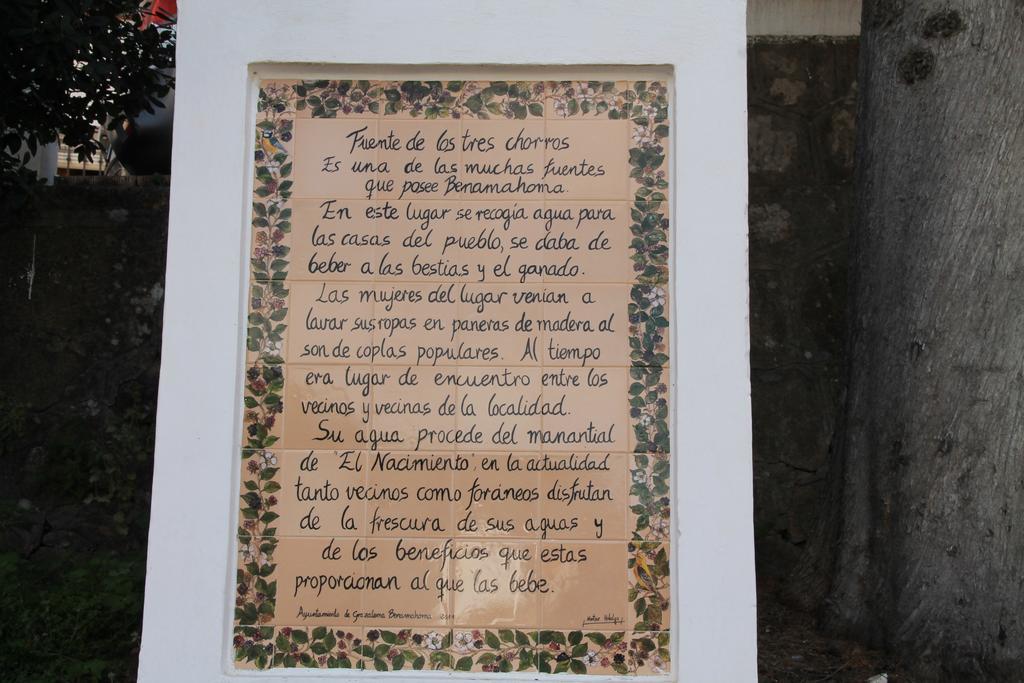 Fuente de los tres chorros
Es una de las muchas fuentes
que posee Benamahoma.
En este lugar se recogía agua para
las casas del pueblo, se daba de
beber a las bestias y el ganado.
Las mujeres del lugar venían a
lavar sus ropas en paneras de madera al
son de coplas populares. Al tiempo
era lugar de encuentro entre los
vecinos y vecinas de la localidad.
Su agua procede del manantial
de "El Nacimiento", en la actualidad
tanto vecinos como foráneos disfrutan
de la frescura de sus aguas y
de los beneficios que estas
proporcionan al que las bebe.
Ayuntamiento de Grazalema Benamahoma